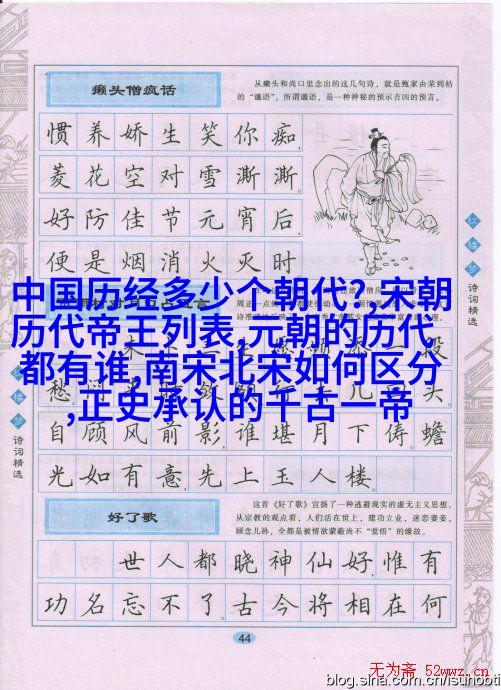 癞头僧疯话
从癞头和尚口里念出的这几句诗，就是甄家由荣到枯
的“谶语”。所谓谶语，是一种神秘的预示吉凶的预言。
惯养娇生笑你痴,
菱花空对雪澌澌。
好防佳节元宵后,
便是烟消火灭时
中国历经多少个朝代?,宋朝
历代帝王列表,元朝的历代
都有谁,南宋北宋如何区分
,正史承认的千古一帝
自顾风前影,谁堪月下俦。蟾
光如有意,先上玉人楼。
好了歌
这首《好了歌》宣扬了一种逃避现实的虚无主义思想。
从宗教的观点看，人们活在世上，建功立业，迷恋妻妾，
顾念儿孙，全都是被情欲蒙蔽尚不“觉悟”的缘故。
世人都晓神仙好,惟有
功名忘不了。古今将相在何
44
红楼梦
诗词精选
诗词精选
无为斋 52wwz.cn
blog.sina.com.cn/isunobti